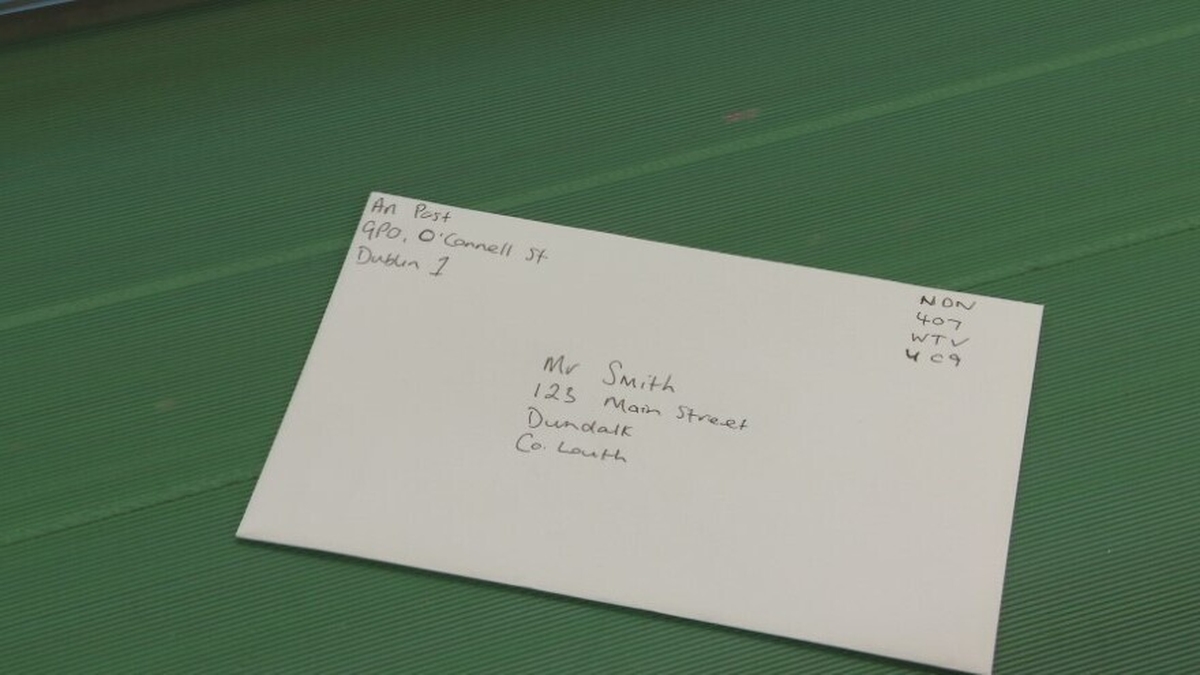 An Post
GPO, O'Connell St
Dublin 1
NDN
407
WTV
4C9
Mr Smith
123 Main Street
Dundalk
Co. Louth